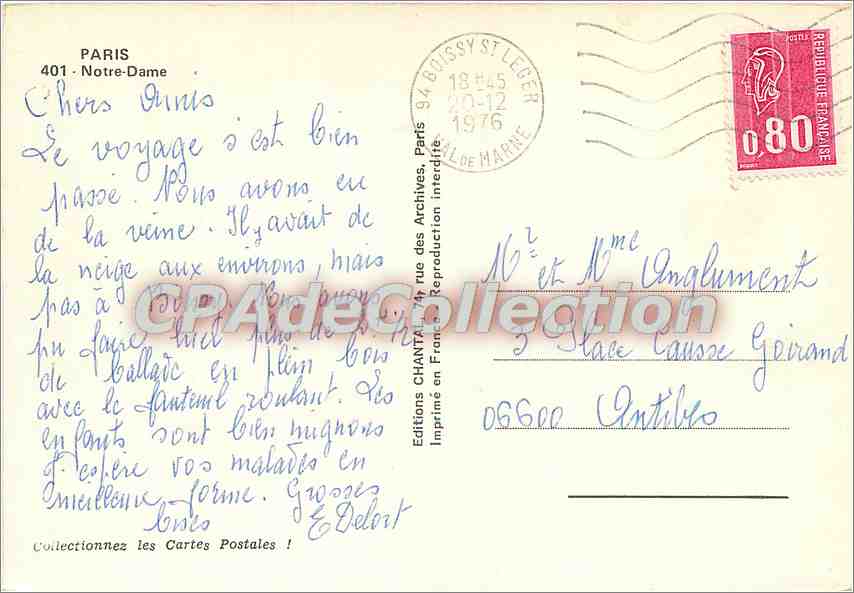 PARIS
401 - Notre-Dame
Chers Amis
Le voyage s'est bien
passé. Nous avons eu
de la veine. Il y avait de
la neige aux environs, mais
pas à Boissy. Nous avons
pu faire hier plus de
de ballade en plein bois
avec le fauteuil roulant. Les
enfants sont bien mignons
J'espère vos malades en
meilleure forme. Grosses
bises E Delort
Collectionnez les Cartes Postales !
Editions CHANTAL, 74, rue des Archives, Paris
Imprimé en France - Reproduction interdite
94 BOISSY ST LEGER
18H45
20-12
1976
VAL DE MARNE
REPUBLIQUE FRANÇAISE
POSTES
0,80
Mr et Mme Anglument
3 Place Causse Goirand
06600 Antibes
CPAdeCollection